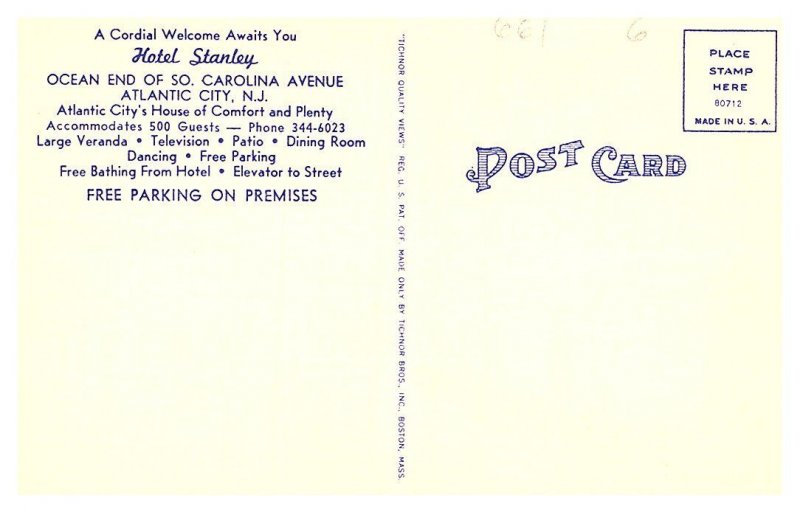 A Cordial Welcome Awaits You
Hotel Stanley
OCEAN END OF SO. CAROLINA AVENUE
ATLANTIC CITY, N.J.
Atlantic City's House of Comfort and Plenty
Accommodates 500 Guests — Phone 344-6023
Large Veranda • Television • Patio • Dining Room
Dancing • Free Parking
Free Bathing From Hotel • Elevator to Street
FREE PARKING ON PREMISES
"TICHNOR QUALITY VIEWS" REG. U. S. PAT. OFF. MADE ONLY BY TICHNOR BROS., INC., BOSTON, MASS.
661 6
POST CARD
PLACE
STAMP
HERE
80712
MADE IN U. S. A.